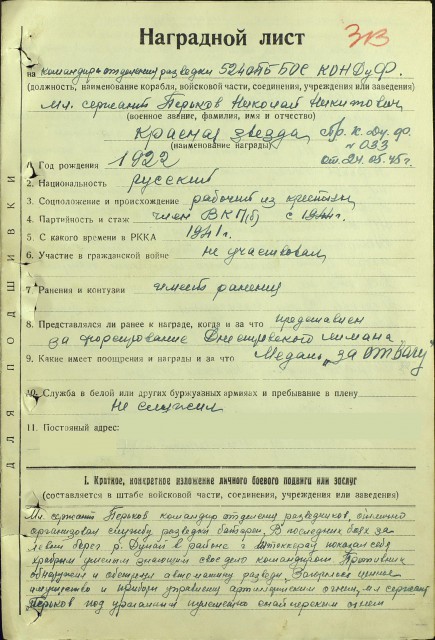 Наградной лист
313
на командира отделения разведки 524 ОПБ БОС КОНДуФ.
(должность, наименование корабля, войсковой части, соединения, учреждения или заведения)
мл. сержант Перьков Николай Никитович
(военное звание, фамилия, имя и отчество)
Красная звезда Пр. К. Ду. Ф.
(наименование награды) № 033
от 24.05.45г.
1. Год рождения 1922
2. Национальность русский
3. Соцположение и происхождение рабочий из крестьян
4. Партийность и стаж член ВКП(б) с 1944г.
5. С какого времени в РККА 1941г.
6. Участие в гражданской войне не участвовал
7. Ранения и контузии имеет ранения
8. Представлялся ли ранее к награде, когда и за что представлен
за форсирование Днестровского лимана
9. Какие имеет поощрения и награды и за что Медаль „за отвагу"
10. Служба в белой или других буржуазных армиях и пребывание в плену
Не служил
11. Постоянный адрес:
ДЛЯ ПОДШИВКИ
I. Краткое, конкретное изложение личного боевого подвига или заслуг
(составляется в штабе войсковой части, соединения, учреждения или заведения)
Мл. сержант Перьков командир отделения разведчиков, отлично
организовал службу разведки батареи. В последних боях за
левый берег р. Дунай в районе г. показал себя
храбрым умелым знающим свое дело командиром. Противник
обнаружил и автомашину разведки. Загорелось ценное
имущество и приборы управления артиллерийским огнем, мл. сержант
Перьков под ураганным пулеметно снайперским огнем